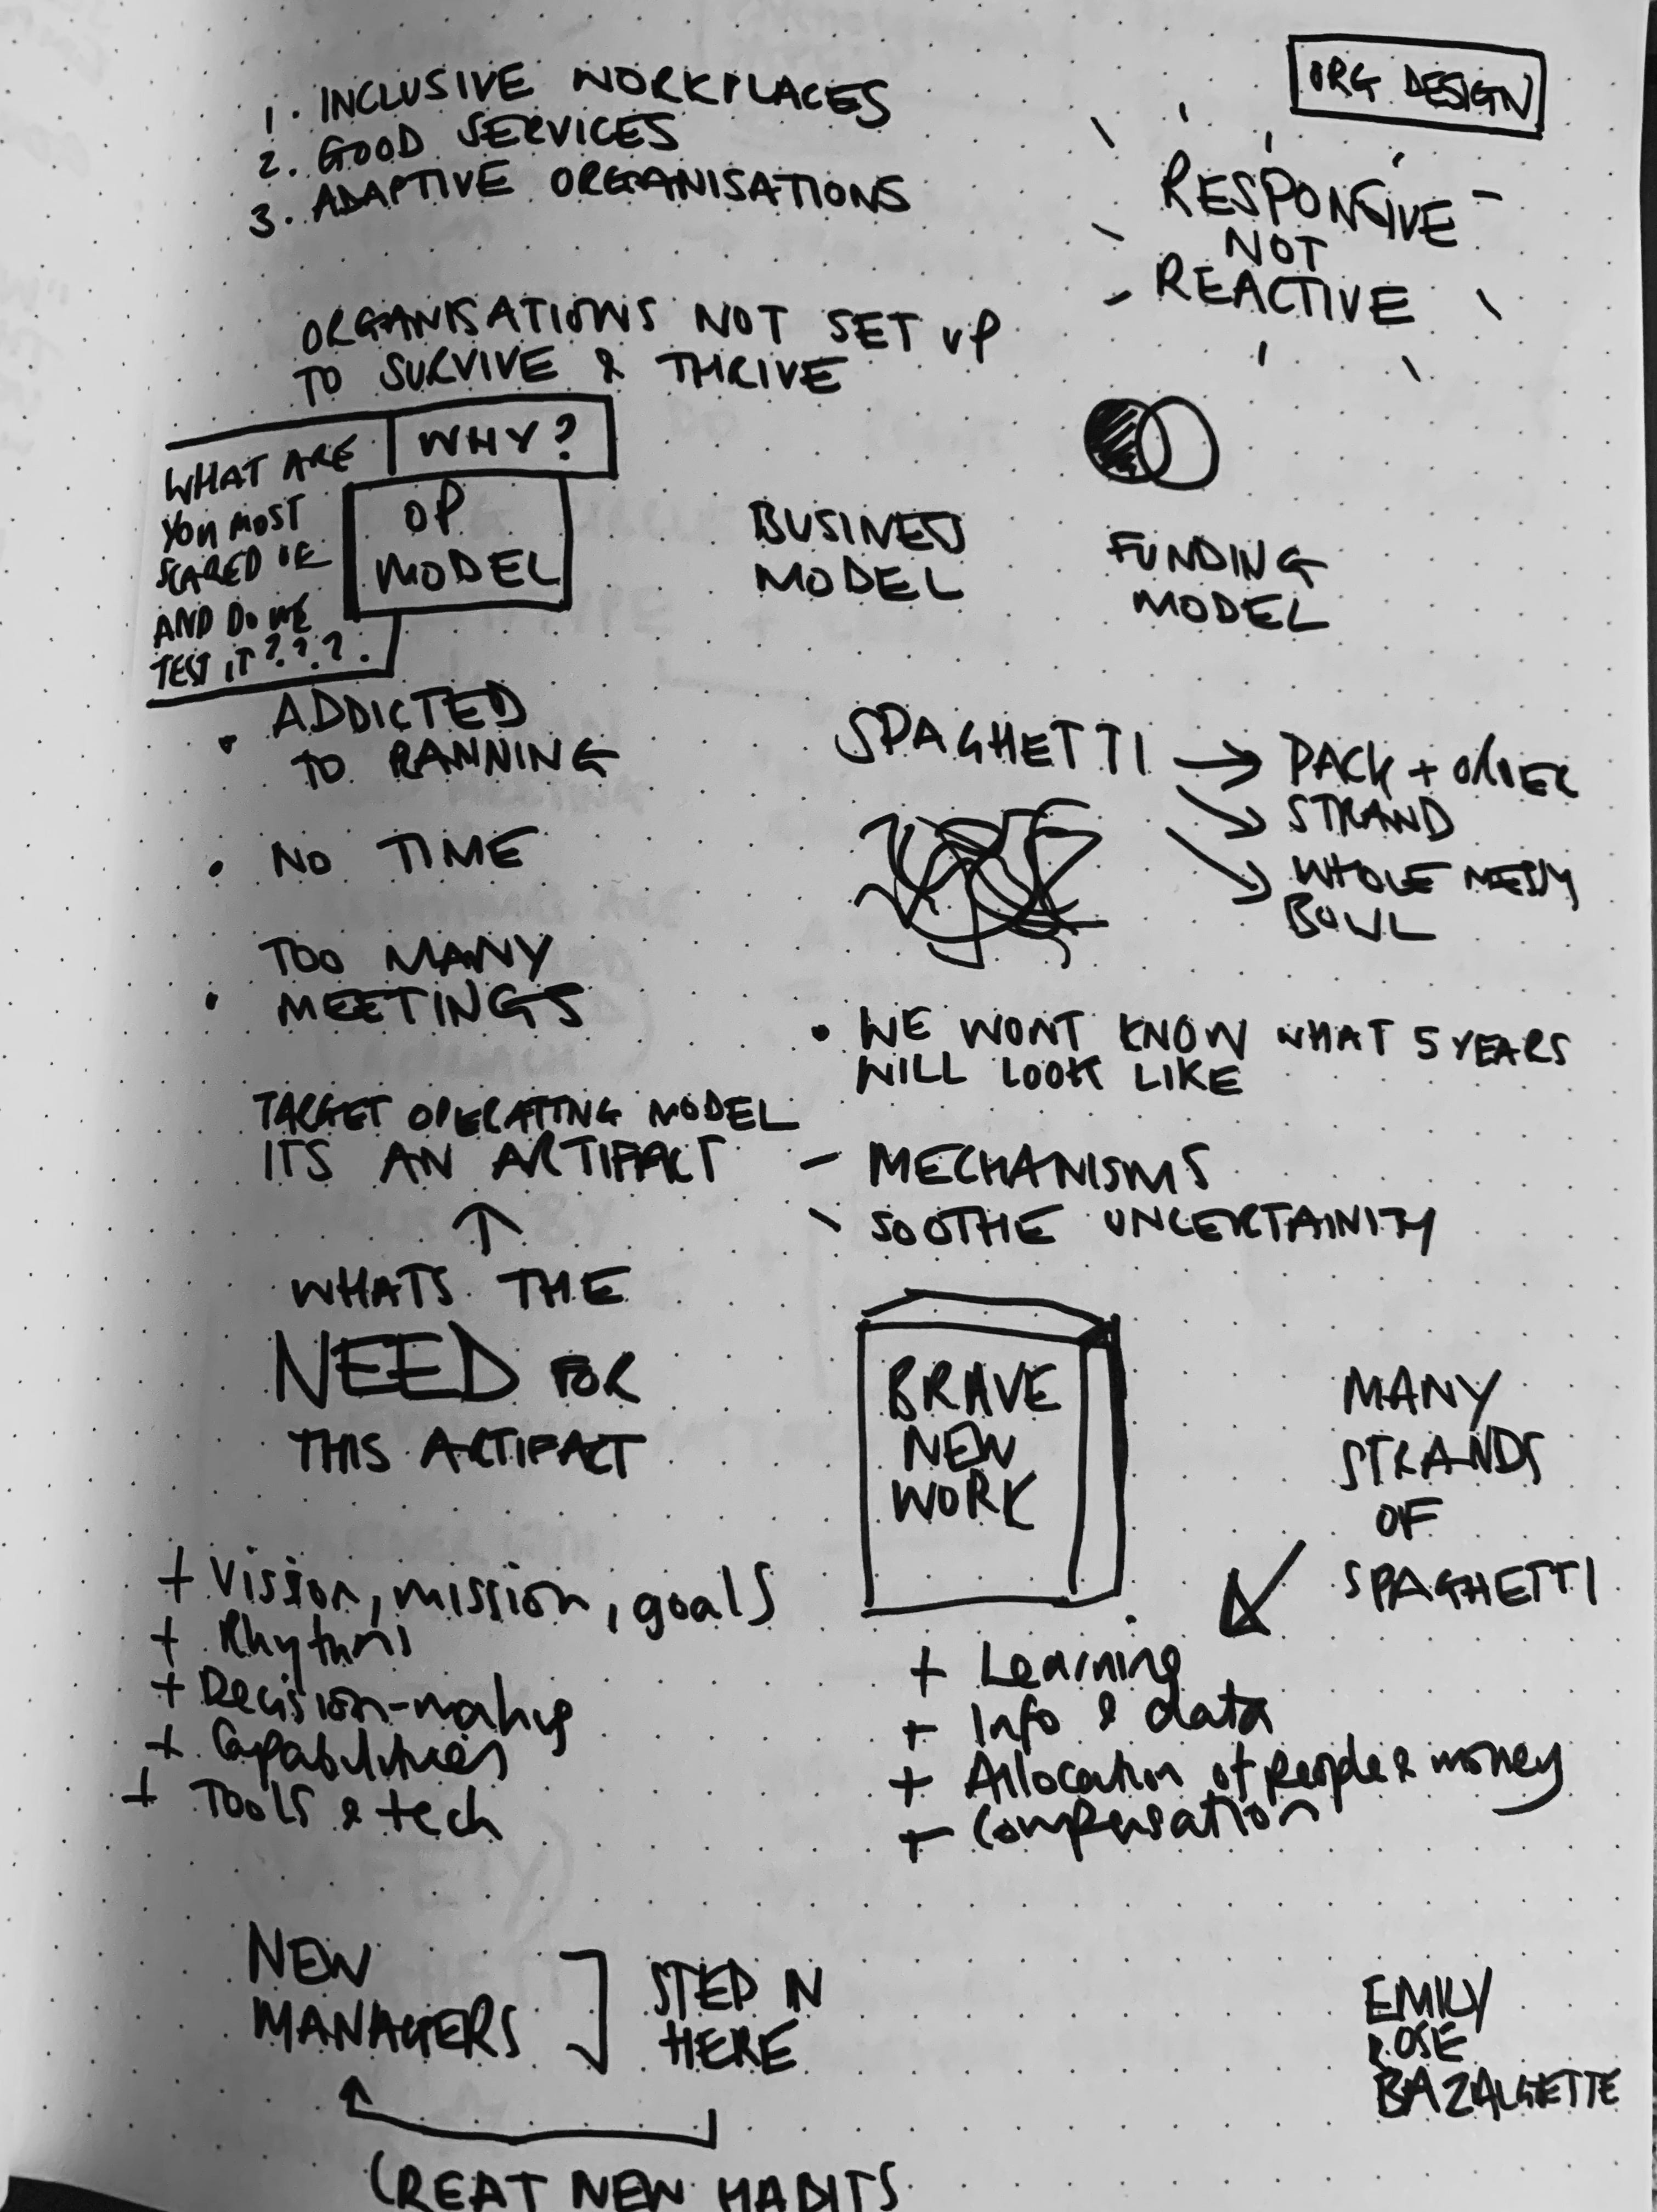 ORG DESIGN
1. INCLUSIVE WORKPLACES
2. GOOD SERVICES
3. ADAPTIVE ORGANISATIONS
RESPONSIVE
NOT
REACTIVE
ORGANISATIONS NOT SET UP
TO SURVIVE & THRIVE
WHY?
WHAT ARE
YOU MOST
SCARED OF
AND DO WE
TEST IT???.
OP
MODEL
BUSINESS
MODEL
FUNDING
MODEL
• ADDICTED
TO PLANNING
• NO TIME
• TOO MANY
MEETINGS
SPAGHETTI → PACK + ORDER
STRAND
WHOLE MESSY
BOWL
• WE WONT KNOW WHAT 5 YEARS
WILL LOOK LIKE
TARGET OPERATING MODEL
ITS AN ARTIFACT
- MECHANISMS
\ SOOTHE UNCERTAINITY
WHATS THE
NEED FOR
THIS ARTIFACT
BRAVE
NEW
WORK
MANY
STRANDS
OF
SPAGHETTI
+ Vission, mission, goals
+ Rhythms
+ Decision-making
+ Capabilities
+ Tools & tech
+ Learning
+ Info & data
+ Allocation of people & money
+ Compensation
NEW
MANAGERS
STEP IN
HERE
CREAT NEW HABITS
EMILY
ROSE
BAZALGETTE